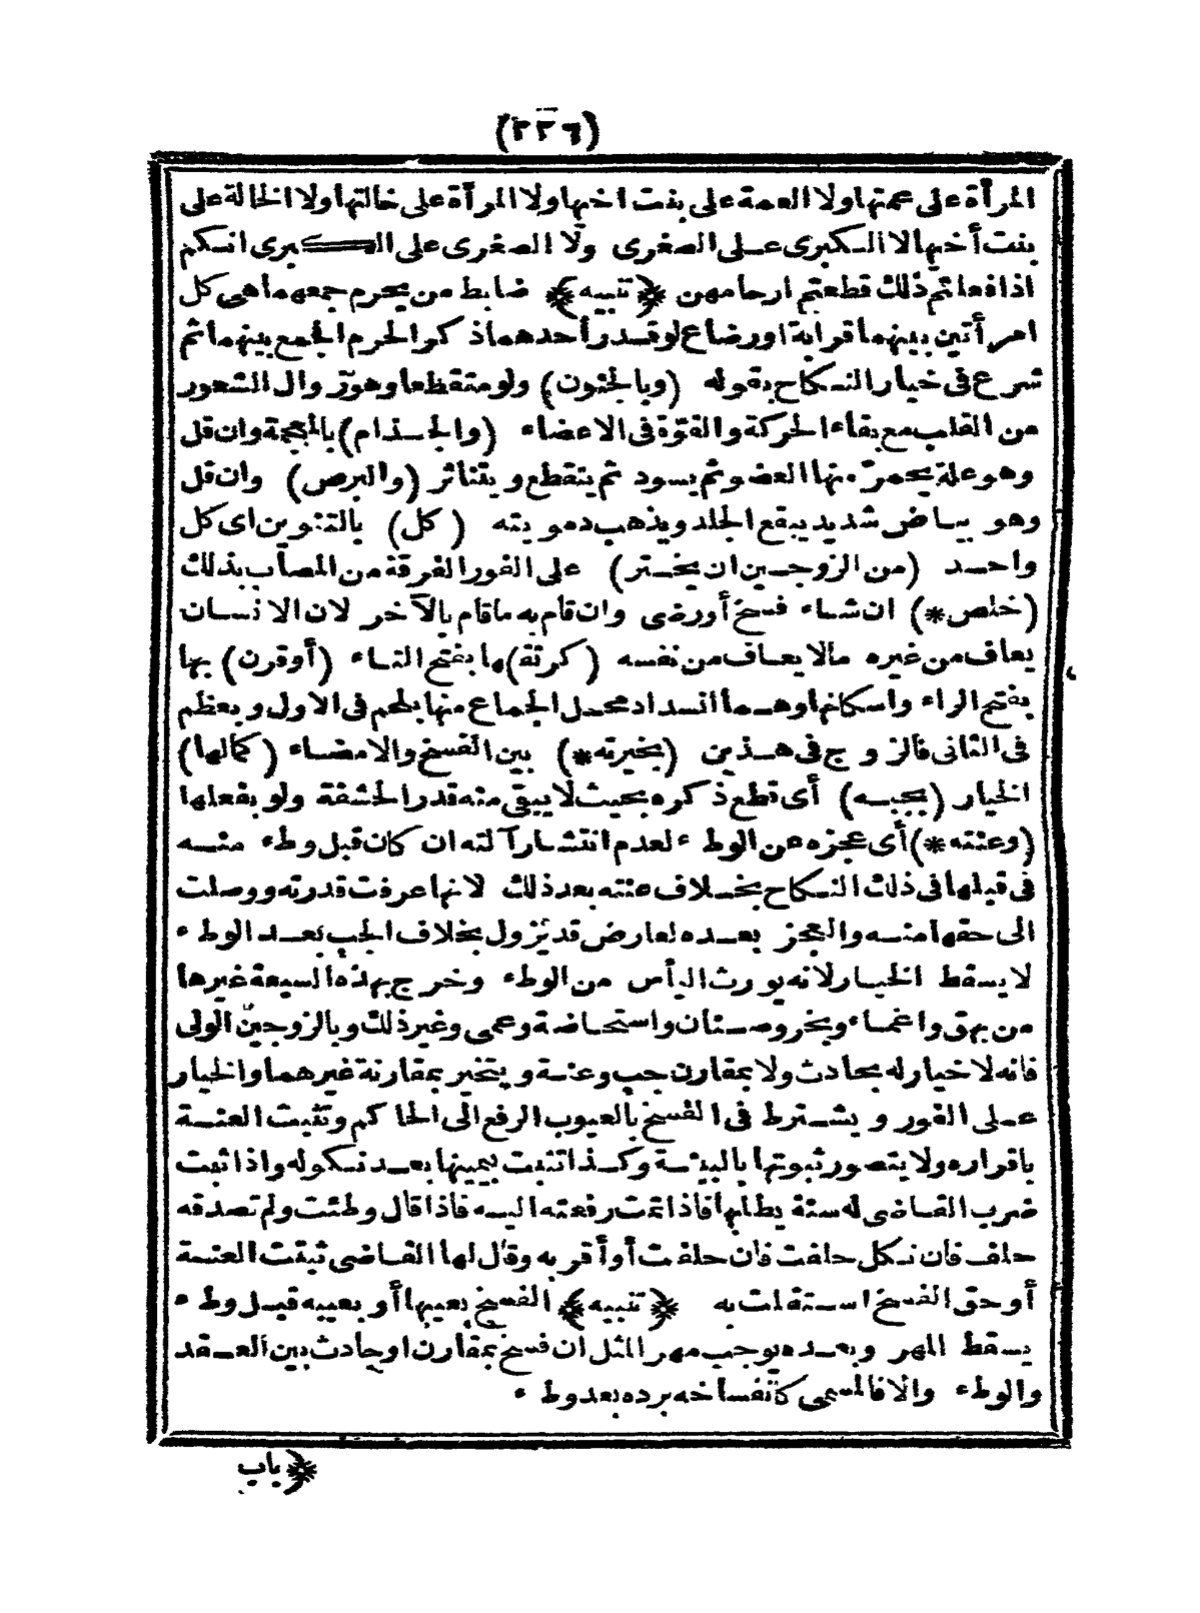 (٢٢٦)
المرأة على عمتها ولا العمة على بنت اخيها ولا المرأة على خالتها ولا الخالة على
بنت أختها لا الكبرى على الصغرى ولا الصغرى على الكبرى انكم
اذا فعلتم ذلك قطعتم ارحامهن ﴿تنبيه﴾ ضابط من يحرم جمعهما هى كل
امرأتين بينهما قرابة او رضاع لو قدر أحدهما ذكرا لحرم الجمع بينهما ثم
شرع فى خيار النكاح بقوله (وبالجنون) ولو متقطعا وهو زوال الشعور
من القلب مع بقاء الحركة والقوّة فى الاعضاء (والجذام) بالمعجمة وان قل
وهو علة يحمرّ منها العضو ثم يسود ثم يتقطع ويتناثر (والبرص) وان قل
وهو بياض شديد يبقع الجلد ويذهب دمويته (كل) بالتنوين اى كل
واحد (من الزوجين ان يختر) على الفور الفرقة من المصاب بذلك
(خلص*) ان شاء فسخ أو رضى وان قام به ما قام بالآخر لان الانسان
يعاف من غيره ما لا يعاف من نفسه (كرتقـ) ـها بفتح التاء (أو قرن) بها
بفتح الراء واسكانها وهما انسداد محل الجماع منها بلحم فى الاول وبعظم
فى الثانى فالزوج فى هذين (بخيرته*) بين الفسخ والامضاء (كما لها)
الخيار (بجبه) أى قطع ذكره بحيث لا يبقى منه قدر الحشفة ولو بفعلها
(وعنته*) أى عجزه عن الوطء لعدم انتشار آلته ان كان قبل وطء منه
فى قبلها فى ذلك النكاح بخلاف عنته بعد ذلك لانها عرفت قدرته ووصلت
الى حقها منه والعجز بعده لعارض قد يزول بخلاف الجب بعد الوطء
لا يسقط الخيار لانه يورث اليأس من الوطء وخرج بهذه السبعة غيرها
من بهق واغماء وبخر وصنان واستحاضة وعمى وغير ذلك وبالزوجين الولى
فانه لا خيار له بحادث ولا بمقارن جب وعنة ويتخير بمقارنة غيرهما والخيار
على الفور ويشترط فى الفسخ بالعيوب الرفع الى الحاكم وتثبت العنة
باقراره ولا يتصور ثبوتها بالبينة وكذا تثبت بيمينها بعد نكوله واذا ثبت
ضرب القاضى له سنة يطلبها فاذا تمت رفعته اليه فاذا قال وطئت ولم تصدقه
حلف فان نكل حلفت فان حلفت أو أقر به وقال لها القاضى ثبتت العنة
أو حق الفسخ استقلت به ﴿تنبيه﴾ الفسخ بعيبها أو بعيبه قبل وطء
يسقط المهر وبعده يوجب مهر المثل ان فسخ بمقارن او حادث بين العقد
والوطء والا فالمسمى كانفساخه بردة بعد وطء
﴿باب